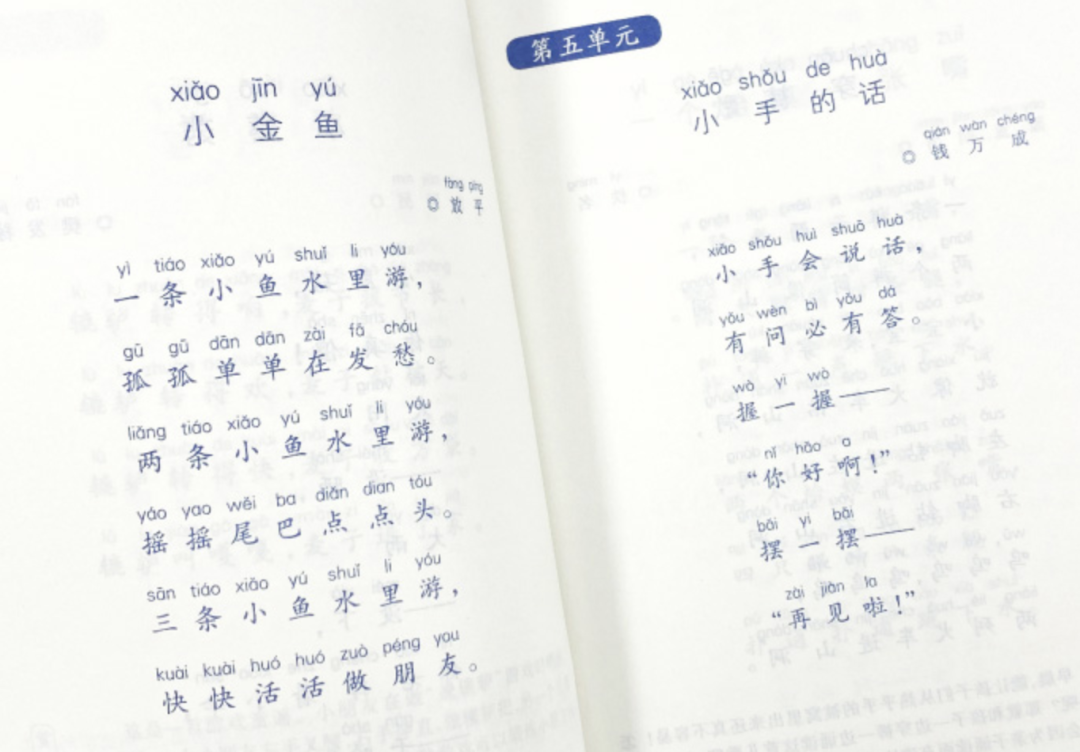 xiǎo jīn yú
小金鱼
fàng píng
◎放平
yì tiáo xiǎo yú shuǐ li yóu
一条小鱼水里游，
gū gū dān dān zài fā chóu
孤孤单单在发愁。
liǎng tiáo xiǎo yú shuǐ li yóu
两条小鱼水里游，
yáo yao wěi ba diǎn dian tóu
摇摇尾巴点点头。
sān tiáo xiǎo yú shuǐ li yóu
三条小鱼水里游，
kuài kuài huó huó zuò péng you
快快活活做朋友。
第五单元
xiǎo shǒu de huà
小手的话
qián wàn chéng
◎钱万成
xiǎo shǒu huì shuō huà
小手会说话，
yǒu wèn bì yǒu dá
有问必有答。
wò yi wò
握一握——
nǐ hǎo a
“你好啊！”
bǎi yi bǎi
摆一摆——
zài jiàn la
“再见啦！”